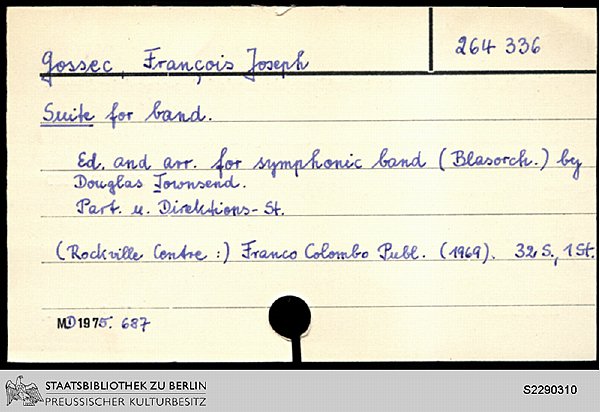 Gossec, François Joseph
264 336
Suite for band.
Ed. and arr. for symphonic band (Blasorch.) by
Douglas Townsend.
Part. u. Direktions-St.
(Rockville Centre:) Franco Colombo Publ. (1969). 32 S., 1 St.
MD 1975. 687
STAATSBIBLIOTHEK ZU BERLIN
PREUSSISCHER KULTURBESITZ
S2290310